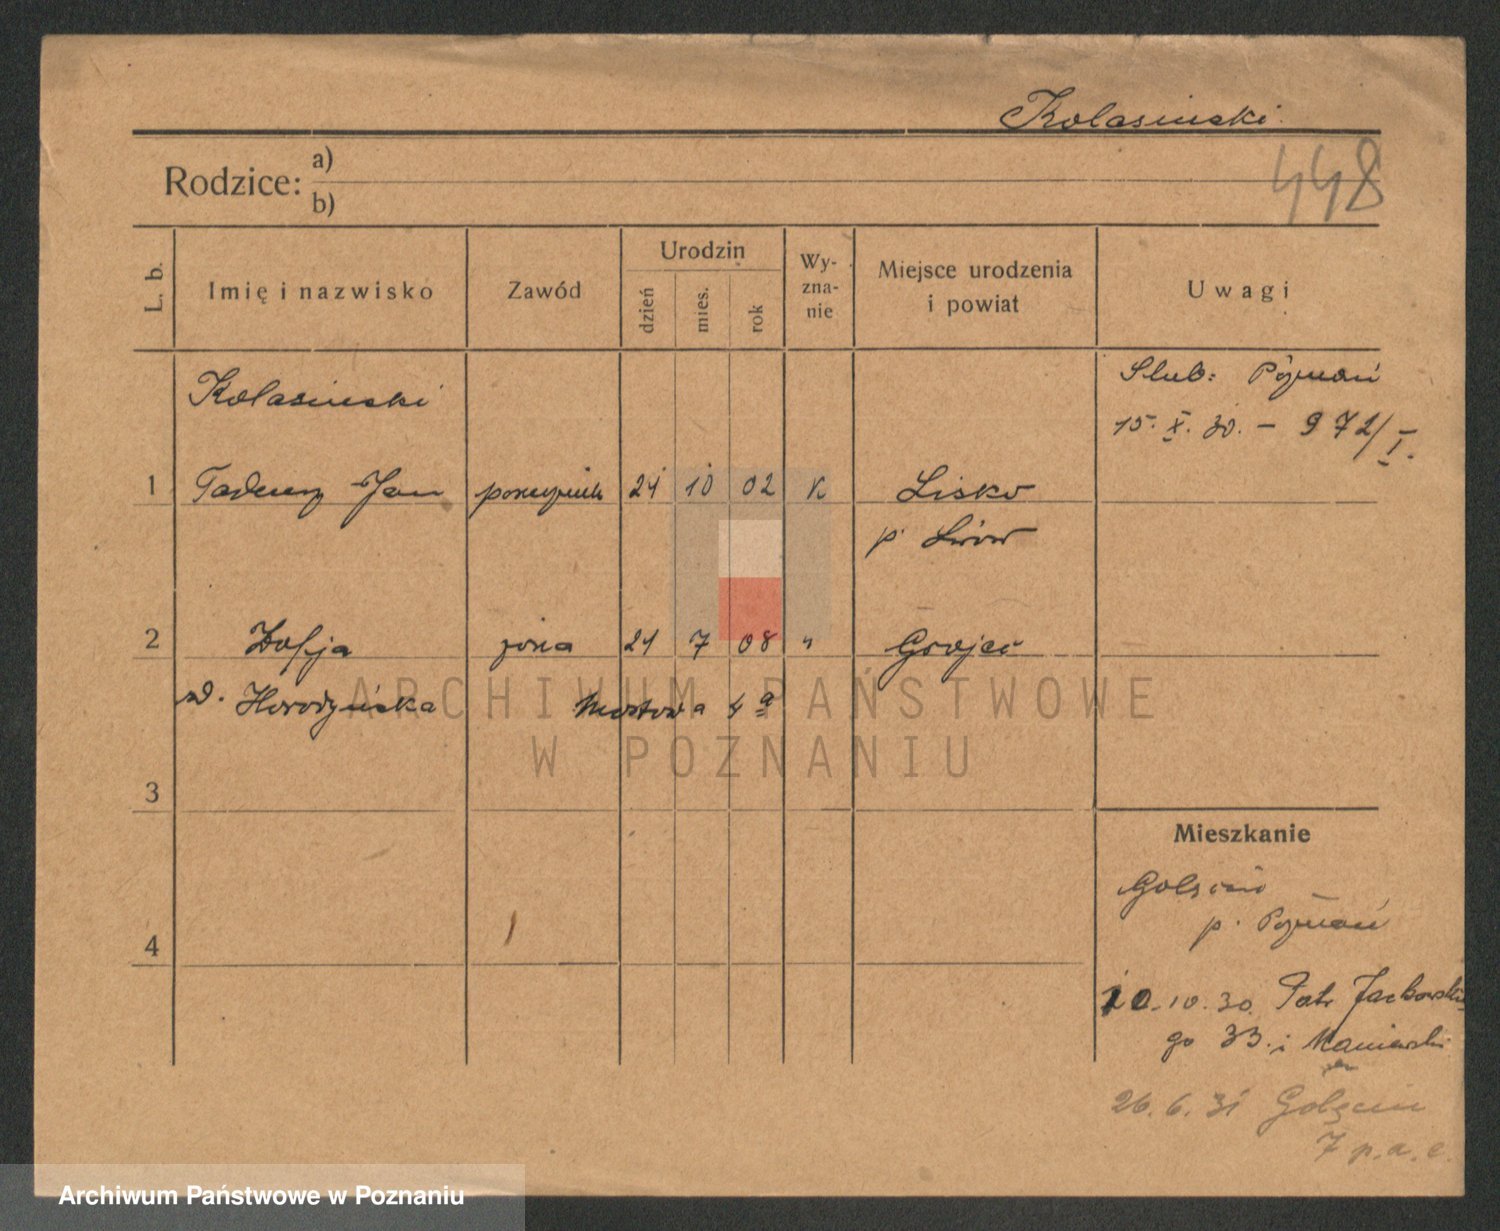 Kolasinski.
448
Rodzice: a)
b)
L. b.
Imię i nazwisko
Zawód
Urodzin
dzień
mies.
rok
Wy-
zna-
nie
Miejsce urodzenia
i powiat
Uwagi
Kolasinski
Slub: Poznań
15. X. 30. — 972/I.
1 Tadeusz Jan porucznik 24 10 02 K Lisko
p. Lwów
2 Zofja żona 21 7 08 " Grojec
Horodyńska Mostowa 4a
ARCHIWUM PAŃSTWOWE
W POZNANIU
3
Mieszkanie
Golęcin
p. Poznań
4
10.10.30. Patr Jackowskie
go 33. i Maniewski
26.6.31 Golęcin
7 p.a.c.
Archiwum Państwowe w Poznaniu